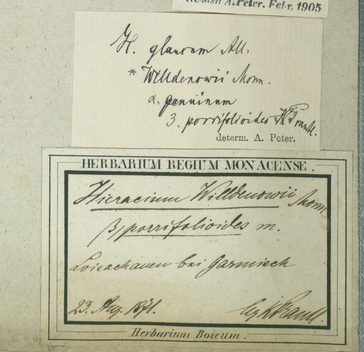 A. Peter. Febr. 1905
H. glaucum All.
* Willdenowii Monn.
α. genuinum
3. porrifolioides K Prantl.
determ. A. Peter.
HERBARIUM REGIUM MONACENSE.
Hieracium Willdenowii Monn
β) porrifolioides m.
Loisachauen bei Garmisch
23. Aug. 1871. leg K Prantl
Herbarium Boicum.